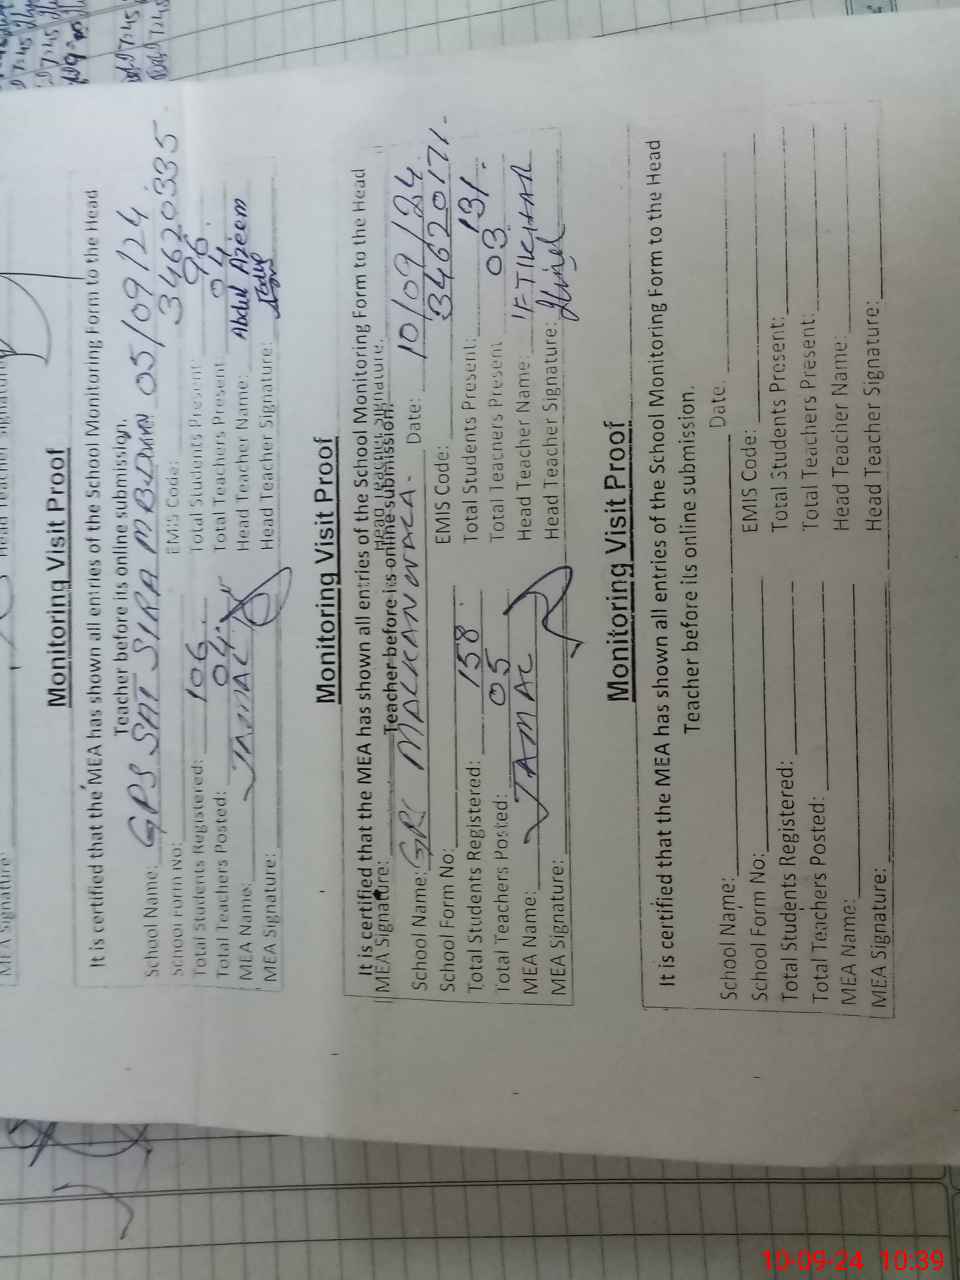 Monitoring Visit Proof
It is certified that the MEA has shown all entries of the School Monitoring Form to the Head
Teacher before its online submission.
School Name: GPS SHI SIRA M B DIN 05/09/24
School Form No: EMIS Code: 34620335
Total Students Registered: 106 Total Students Present: 96
Total Teachers Posted: 04 Total Teachers Present: 04
MEA Name: JAMAL Head Teacher Name: Abdul Azeem
MEA Signature: Head Teacher Signature:
Monitoring Visit Proof
It is certified that the MEA has shown all entries of the School Monitoring Form to the Head
MEA Signature: Head Teacher Signature:
Teacher before its online submission.
School Name: MALKANWALA Date: 10/09/24
School Form No: EMIS Code: 34620171
Total Students Registered: 158 Total Students Present: 131
Total Teachers Posted: 05 Total Teachers Present 03
MEA Name: JAMAL Head Teacher Name: IFTIKHAR
MEA Signature: Head Teacher Signature:
Monitoring Visit Proof
It is certified that the MEA has shown all entries of the School Monitoring Form to the Head
Teacher before its online submission.
School Name: Date
School Form No: EMIS Code:
Total Students Registered: Total Students Present:
Total Teachers Posted: Total Teachers Present:
MEA Name: Head Teacher Name:
MEA Signature: Head Teacher Signature:
10-09-24 10:39